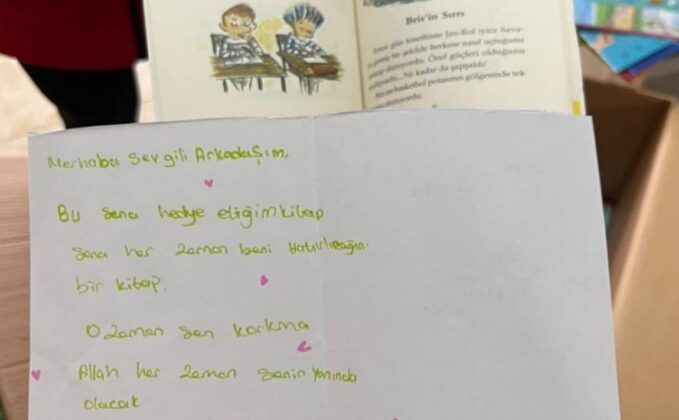 Bris'in Sırrı
Ertesi gün teneffüste Jan-Rol iyice hava-
şekilde herkese nasıl uçtuğunu
duruyordu. Özel güçleri olduğunu
Ne kadar da şapşaldı!
basketbol potasının gölgesinde tek
Merhaba Sevgili Arkadaşım,
Bu sana hediye etiğim kitap
sana her zaman beni Hatırlıcağın
bir kitap.
O zaman sen korkma
Allah her zaman senin yanında
olacak